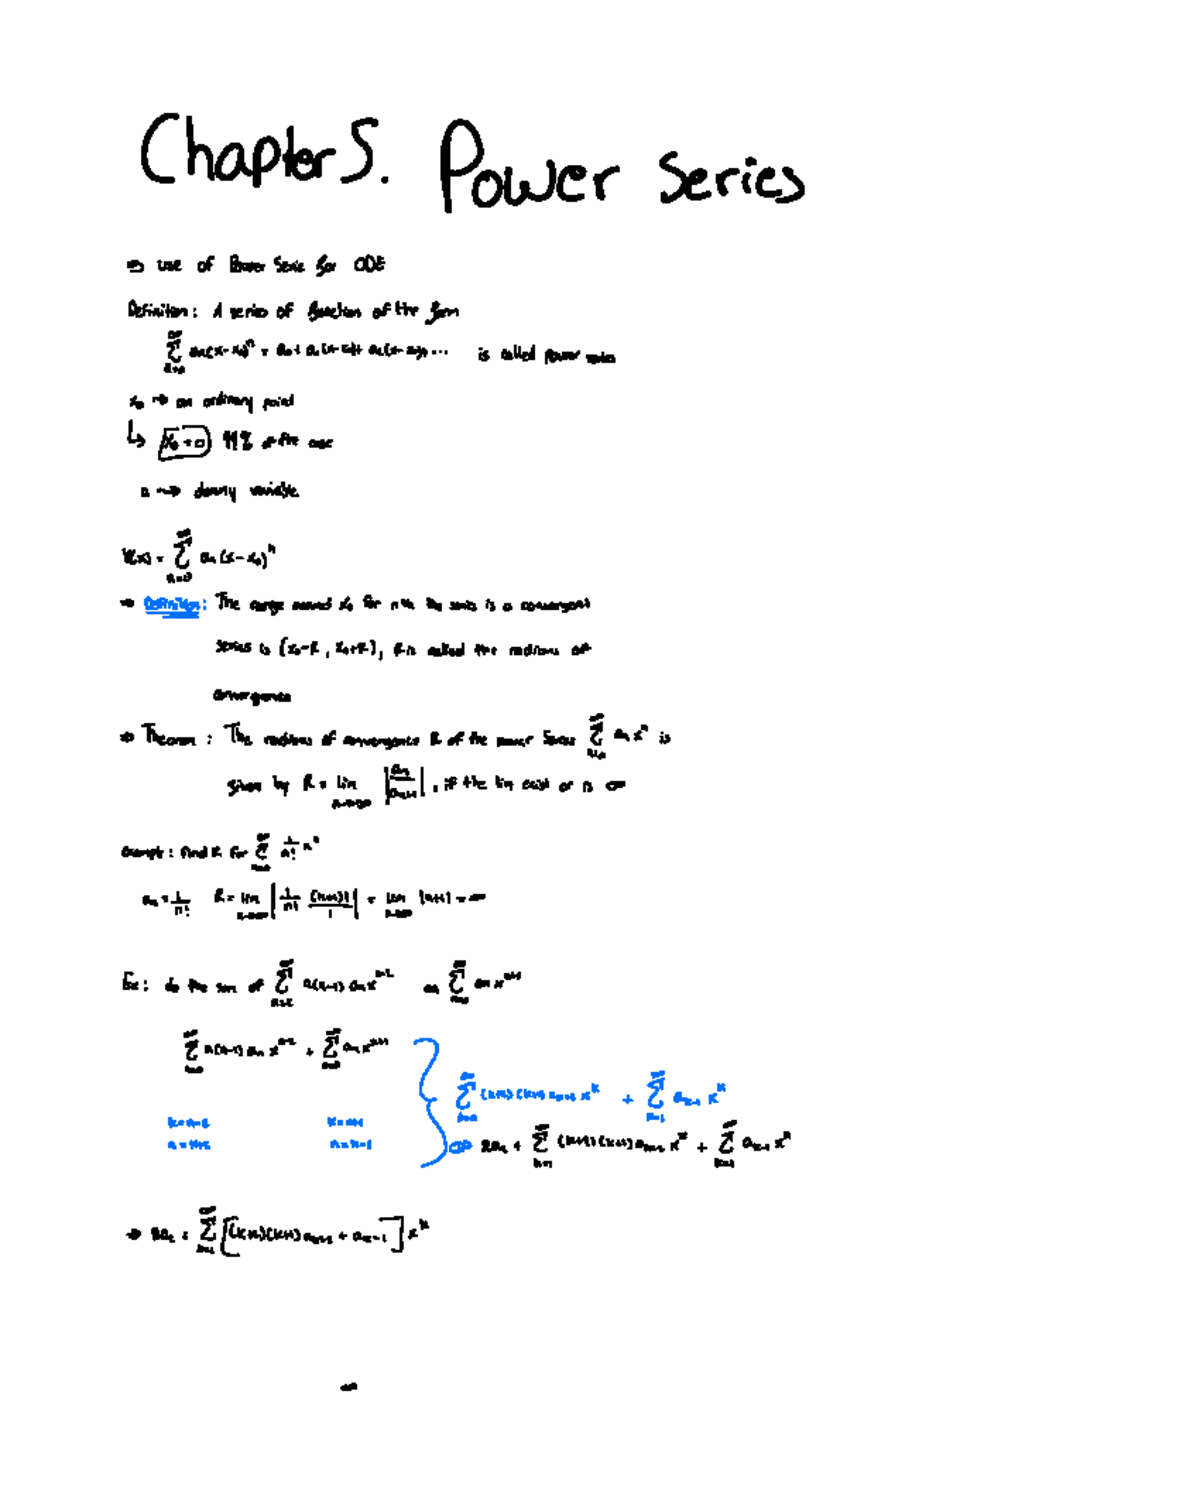 Chapter 5. Power Series
⇒ use of Power Serie for ODE
Definition: A series of function of the form
∑ an(x-x0)^n = a0 + a1(x-x0) + a2(x-x0)² ... is called power series
x0 → an ordinary point
↳ x0 = 0 99% of the case
n → dummy variable
Y(x) = ∑_{n=0}^∞ an (x-x0)^n
⇒ Definition: The range around x0 for the series is a convergent
series is (x0-R, x0+R), R is called the radious of
convergence
⇒ Theorem: The radious of convergence R of the power Series ∑_{n=0}^∞ an x^n is
given by R = lim_{n→∞} |an/an+1|, if the lim exist or is ∞
Example: find R for ∑_{n=0}^∞ 1/n! x^n
an = 1/n! R = lim_{n→∞} |1/n! (n+1)!/1| = lim_{n→∞} |n+1| = ∞
Ex: do the sum of ∑_{n=2}^∞ n(n-1) an x^{n-2} ∑_{n=0}^∞ an x^{n+1}
∑ n(n-1) an x^{n-2} + ∑_{n=0}^∞ an x^{n+1}
∑_{k=0}^∞ (k+2)(k+1) ak+2 x^k + ∑_{k=1}^∞ ak-1 x^k
k = n-2 k = n+1
n = k+2 n = k-1
⇔ 2a2 + ∑_{k=1}^∞ (k+2)(k+1) ak+2 x^k + ∑_{k=1}^∞ ak-1 x^k
⇒ 2a2 + ∑_{k=1}^∞ [(k+2)(k+1) ak+2 + ak-1] x^k